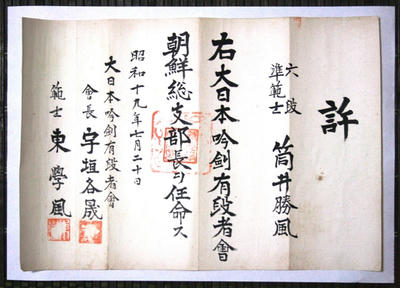 許
六段
準範士 筒井勝風
右大日本吟剣有段者會
朝鮮総支部長ヲ任命ス
昭和十九年七月二十日
大日本吟剣有段者會
会長 宇垣各晟
範士 東學風